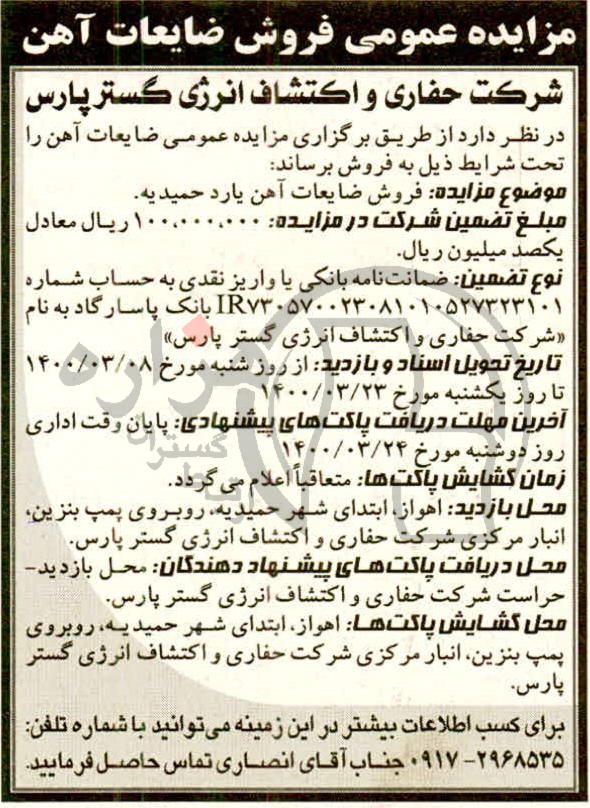 مزایده عمومی فروش ضایعات آهن
شرکت حفاری و اکتشاف انرژی گستر پارس
در نظر دارد از طریق برگزاری مزایده عمومی ضایعات آهن را
تحت شرایط ذیل به فروش برساند:
موضوع مزایده: فروش ضایعات آهن یارد حمیدیه.
مبلغ تضمین شرکت در مزایده: ۱۰۰،۰۰۰،۰۰۰ ریال معادل
یکصد میلیون ریال.
نوع تضمین: ضمانت‌نامه بانکی یا واریز نقدی به حساب شماره
IR۷۳۰۵۷۰۰۲۳۰۸۱۰۱۰۵۲۷۳۲۳۱۰۱ بانک پاسارگاد به نام
«شرکت حفاری و اکتشاف انرژی گستر پارس»
تاریخ تحویل اسناد و بازدید: از روز شنبه مورخ ۱۴۰۰/۰۳/۰۸
تا روز یکشنبه مورخ ۱۴۰۰/۰۳/۲۳
آخرین مهلت دریافت پاکت‌های پیشنهادی: پایان وقت اداری
روز دوشنبه مورخ ۱۴۰۰/۰۳/۲۴
زمان گشایش پاکت‌ها: متعاقباً اعلام می گردد.
محل بازدید: اهواز، ابتدای شهر حمیدیه، روبروی پمپ بنزین،
انبار مرکزی شرکت حفاری و اکتشاف انرژی گستر پارس.
محل دریافت پاکت‌های پیشنهاد دهندگان: محل بازدید-
حراست شرکت حفاری و اکتشاف انرژی گستر پارس.
محل گشایش پاکت‌ها: اهواز، ابتدای شهر حمیدیه، روبروی
پمپ بنزین، انبار مرکزی شرکت حفاری و اکتشاف انرژی گستر
پارس.
برای کسب اطلاعات بیشتر در این زمینه می‌توانید با شماره تلفن:
۲۹۶۸۵۳۵- ۰۹۱۷ جناب آقای انصاری تماس حاصل فرمایید.
هزاره
گستران